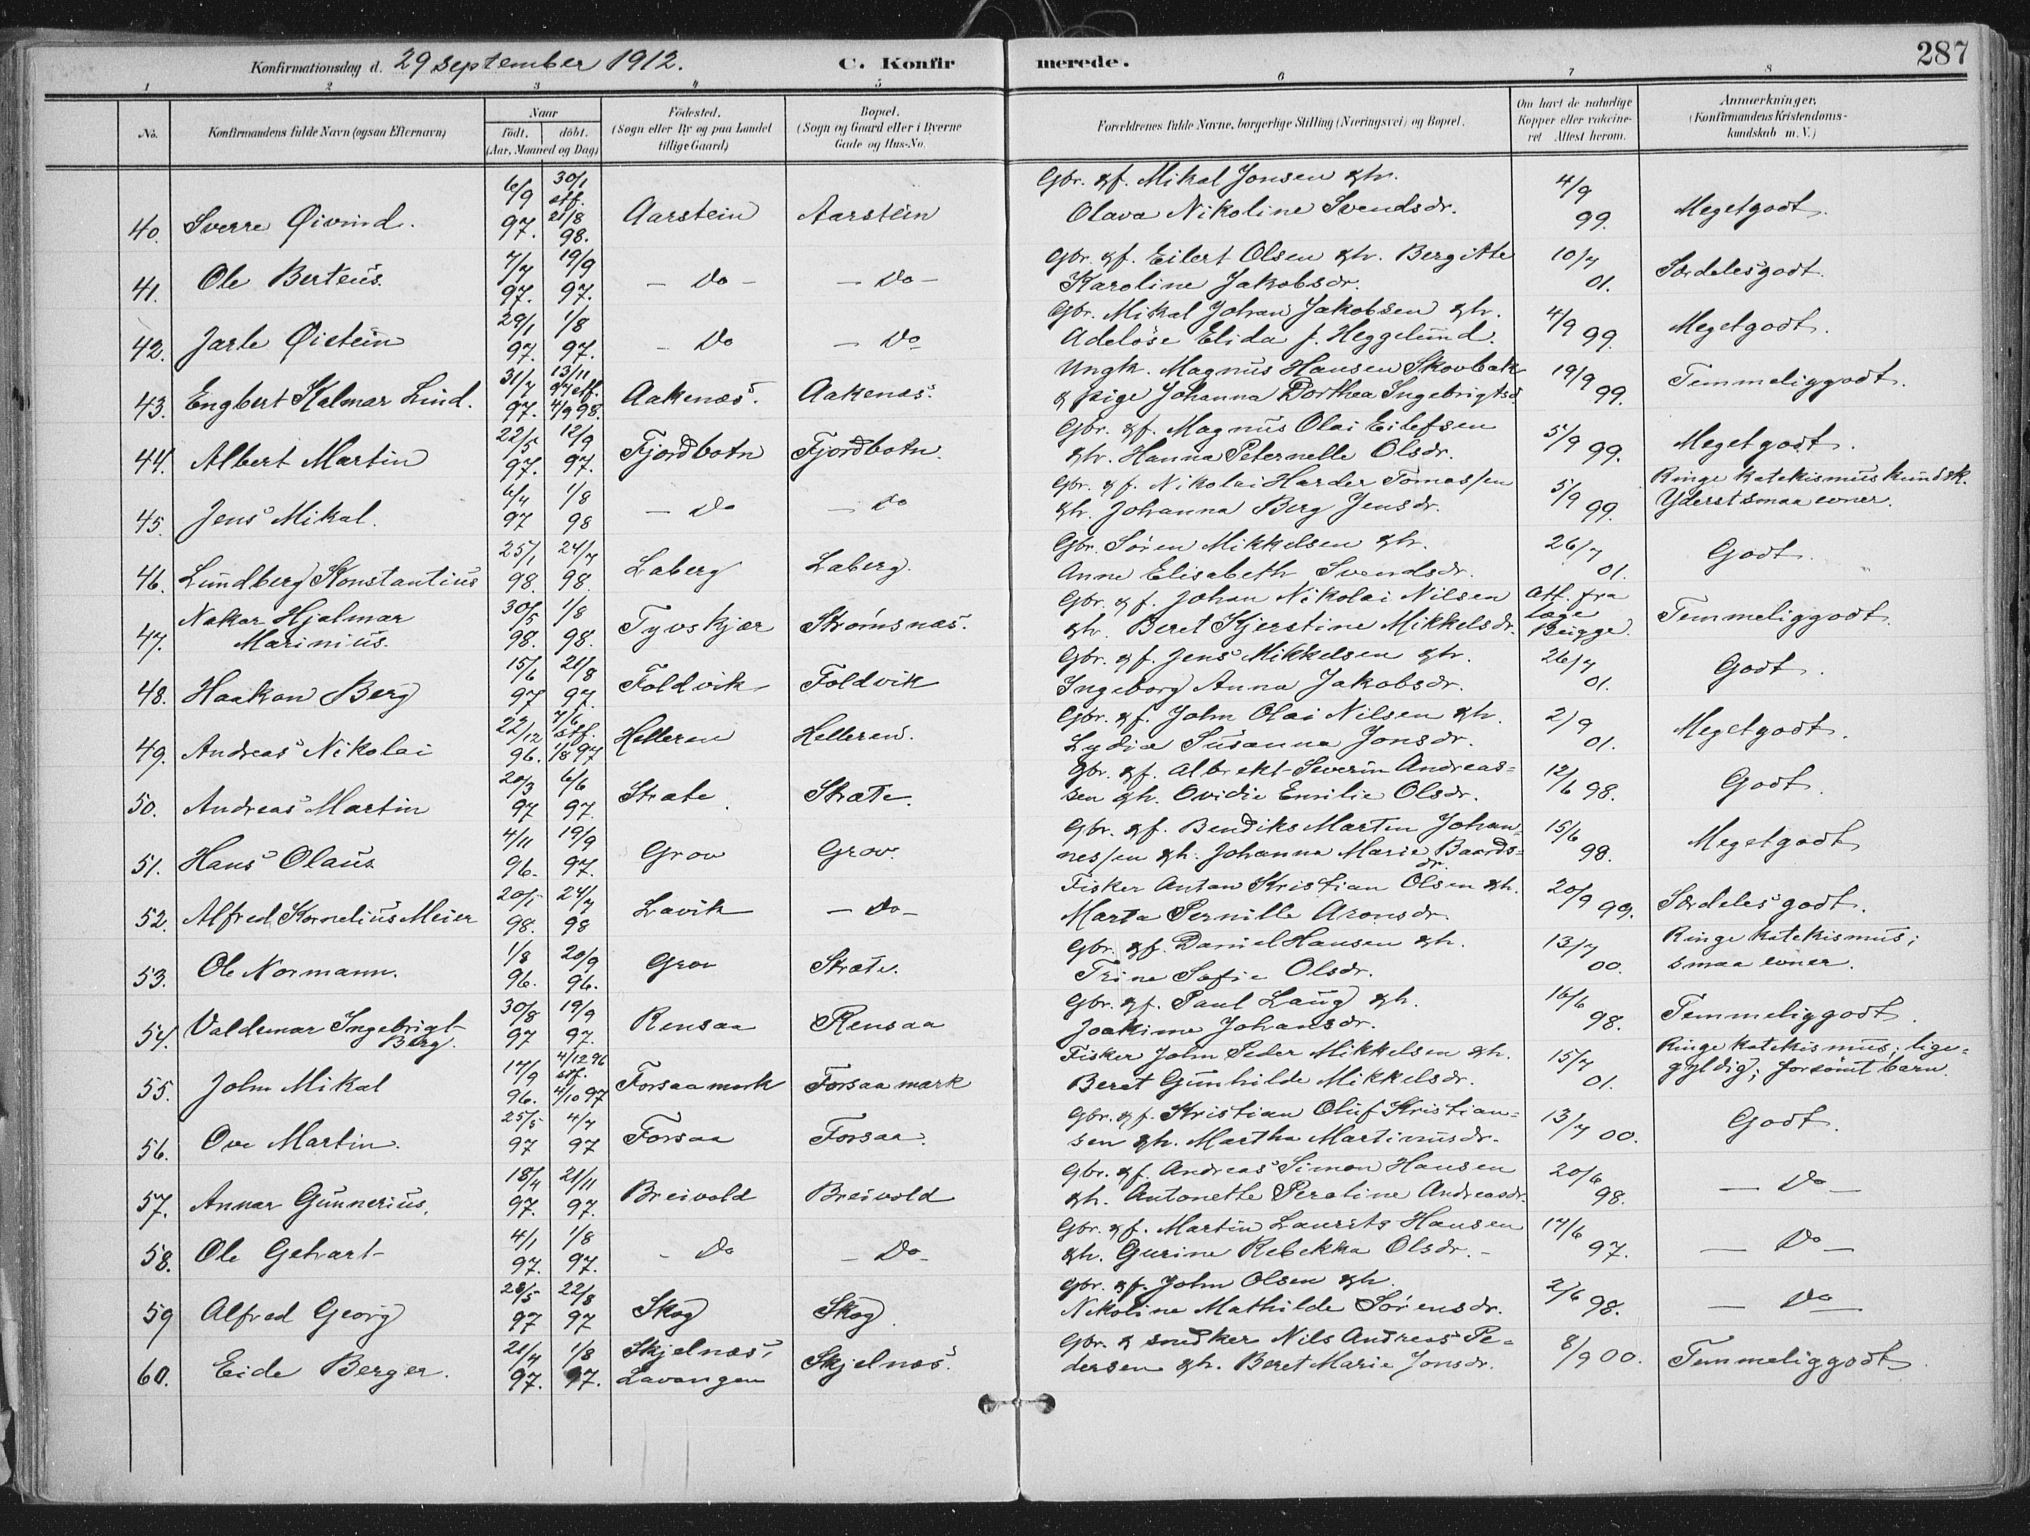 287
Konfirmationsdag d. 29 september 1912. C. Konfirmerede.
1 2 3 4 5 6 7 8
No. Konfirmandens fulde Navn (ogsaa Efternavn) Naar født. døbt. (Aar, Maaned og Dag) Fødested. (Sogn eller By og paa Landet tillige Gaard) Bopæl. (Sogn og Gaard eller i Byerne Gade og Hus-No. Forældrenes fulde Navne, borgerlige Stilling (Næringsvei) og Bopæl. Om havt de naturlige Kopper eller vaccineret Attest herom. Anmærkninger, (Konfirmandens Kristendomskundskab m. V.)
40. Sverre Øivind. 6/9 97. 30/1 stf. 21/8 98. Aarstein Aarstein Gbr. & f. Mikal Jonsen & hr. Olava Nikoline Svendsdr. 4/9 99. Megetgodt.
41. Ole Berteus. 7/7 97. 19/9 97. — Do — — Do — Gbr. & f. Eilert Olsen & hr. Bergitte Karoline Jakobsdr. 10/7 01. Særdelesgodt.
42. Jarle Øistein 29/1 97. 1/8 97. — Do — Do Gbr. Mikal Johan Jakobsen & hr. Adeløse Elida f. Heggelund. 4/9 99. Megetgodt.
43. Engbert Halmar Lind. 31/7 97. 13/11 97 stf. 4/9 98. Aakenæs. Aakenæs. Ungk. Magnus Hansen Skovbak & pige Johanna Dorthea Ingebrigtsd 19/9 99. Temmeliggodt.
44. Albert Martin 22/5 97. 12/9 97. Fjordbotn Fjordbotn. Gbr. & f. Magnus Olai Eilefsen & hr. Hanna Peternelle Olsdr. 5/9 99. Megetgodt.
45. Jens Mikal. 6/4 97 1/8 98 — Do — Do Gbr. & f. Nikolai Harder Tomassen & hr. Johanna Berg Jensdr. 5/9 99. Ringe katekismuskundsk. Yderst smaa evner.
46. Lundberg Konstantius 25/1 98. 24/7 98. Laberg Laberg. Gbr. Søren Mikkelsen & hr. Anne Elisabeth Svendsdr. 26/7 01. Godt.
47. Nakar Hjalmar Marinius. 30/5 98. 1/8 98. Tyvskjær Strømsnæs. Gbr. & f. Johan Nikolai Nilsen & hr. Beret Kjerstine Mikkelsdr. Att. fra læge Beigge. Temmeliggodt.
48. Haakon Berg 15/6 97 21/8 97. Foldvik Foldvik Gbr. & f. Jens Mikkelsen & hr. Ingeborg Anna Jakobsdr. 26/7 01. Godt.
49. Andreas Nikolai 22/12 96. 7/6 stf. 1/8 97 Helleren Helleren. Gbr. & f. John Olai Nilsen & hr. Lydia Susanna Jonsdr. 2/9 01. Megetgodt.
50. Andreas Martin 20/3 97 6/6 97. Stræte Stræte. Gbr. & f. Albrekt Severin Andreassen & h. Ovidie Emilie Olsdr. 12/6 98. Godt.
51. Hans Olaus 4/11 96. 19/9 97. Grov Grov. Gbr. & f. Bendiks Martin Johannessen & h. Johanna Marie Baardsdr. 15/6 98. Megetgodt
52. Alfred Kornelius Meier 20/1 98. 24/7 98 Lavik — Do — Fisker Anton Kristian Olsen & h. Marta Pernille Aronsdr. 20/9 99. Særdelesgodt.
53. Ole Normann. 1/8 96. 20/9 96. Grov Stræte. Gbr. & f. Daniel Hansen & h. Trine Sofie Olsdr. 13/7 00. Ringe katekismus; smaa evner.
54. Valdemar Ingebrigt Berg. 30/8 97 19/9 97. Rensaa Rensaa Gbr. & f. Paul Laug & h. Joakime Johansdr. 16/6 98. Temmeliggodt.
55. John Mikal 17/9 96. 4/12 96 stf. 4/10 97 Forsaamark Forsaamark Fisker John Peder Mikkelsen & h. Beret Gunhilde Mikkelsdr. 15/7 01. Ringe katekismus; ligegyldig; forsømt barn.
56. Ove Martin. 25/5 97 4/7 97 Forsaa Forsaa. Gbr. & f. Kristian Oluf Kristiansen & h. Martha Martinusdr. 13/7 00. Godt.
57. Annar Gunnerius. 18/4 97. 21/11 97. Breivold Breivold Gbr. & f. Andreas Simon Hansen & h. Antonette Peroline Andreasdr. 20/6 98. — Do —
58. Ole Gehart 4/1 97. 1/8 97. — Do — Do — Gbr. & f. Martin Laurits Hansen & h. Gurine Rebekka Olsdr. 17/6 97. — Do —
59 Alfred Georg 28/5 97 22/8 97 Skog Skog. Gbr. & f. John Olsen & h. Nikoline Mathilde Sørensdr. 2/6 98. — Do —
60. Eide Berger. 21/4 97. 1/8 97. Skjelnæs, Lavangen Skjelnæs. Gbr. & snedker Nils Andreas Pedersen & h. Beret Marie Jonsdr. 8/9 00. Temmeliggodt.